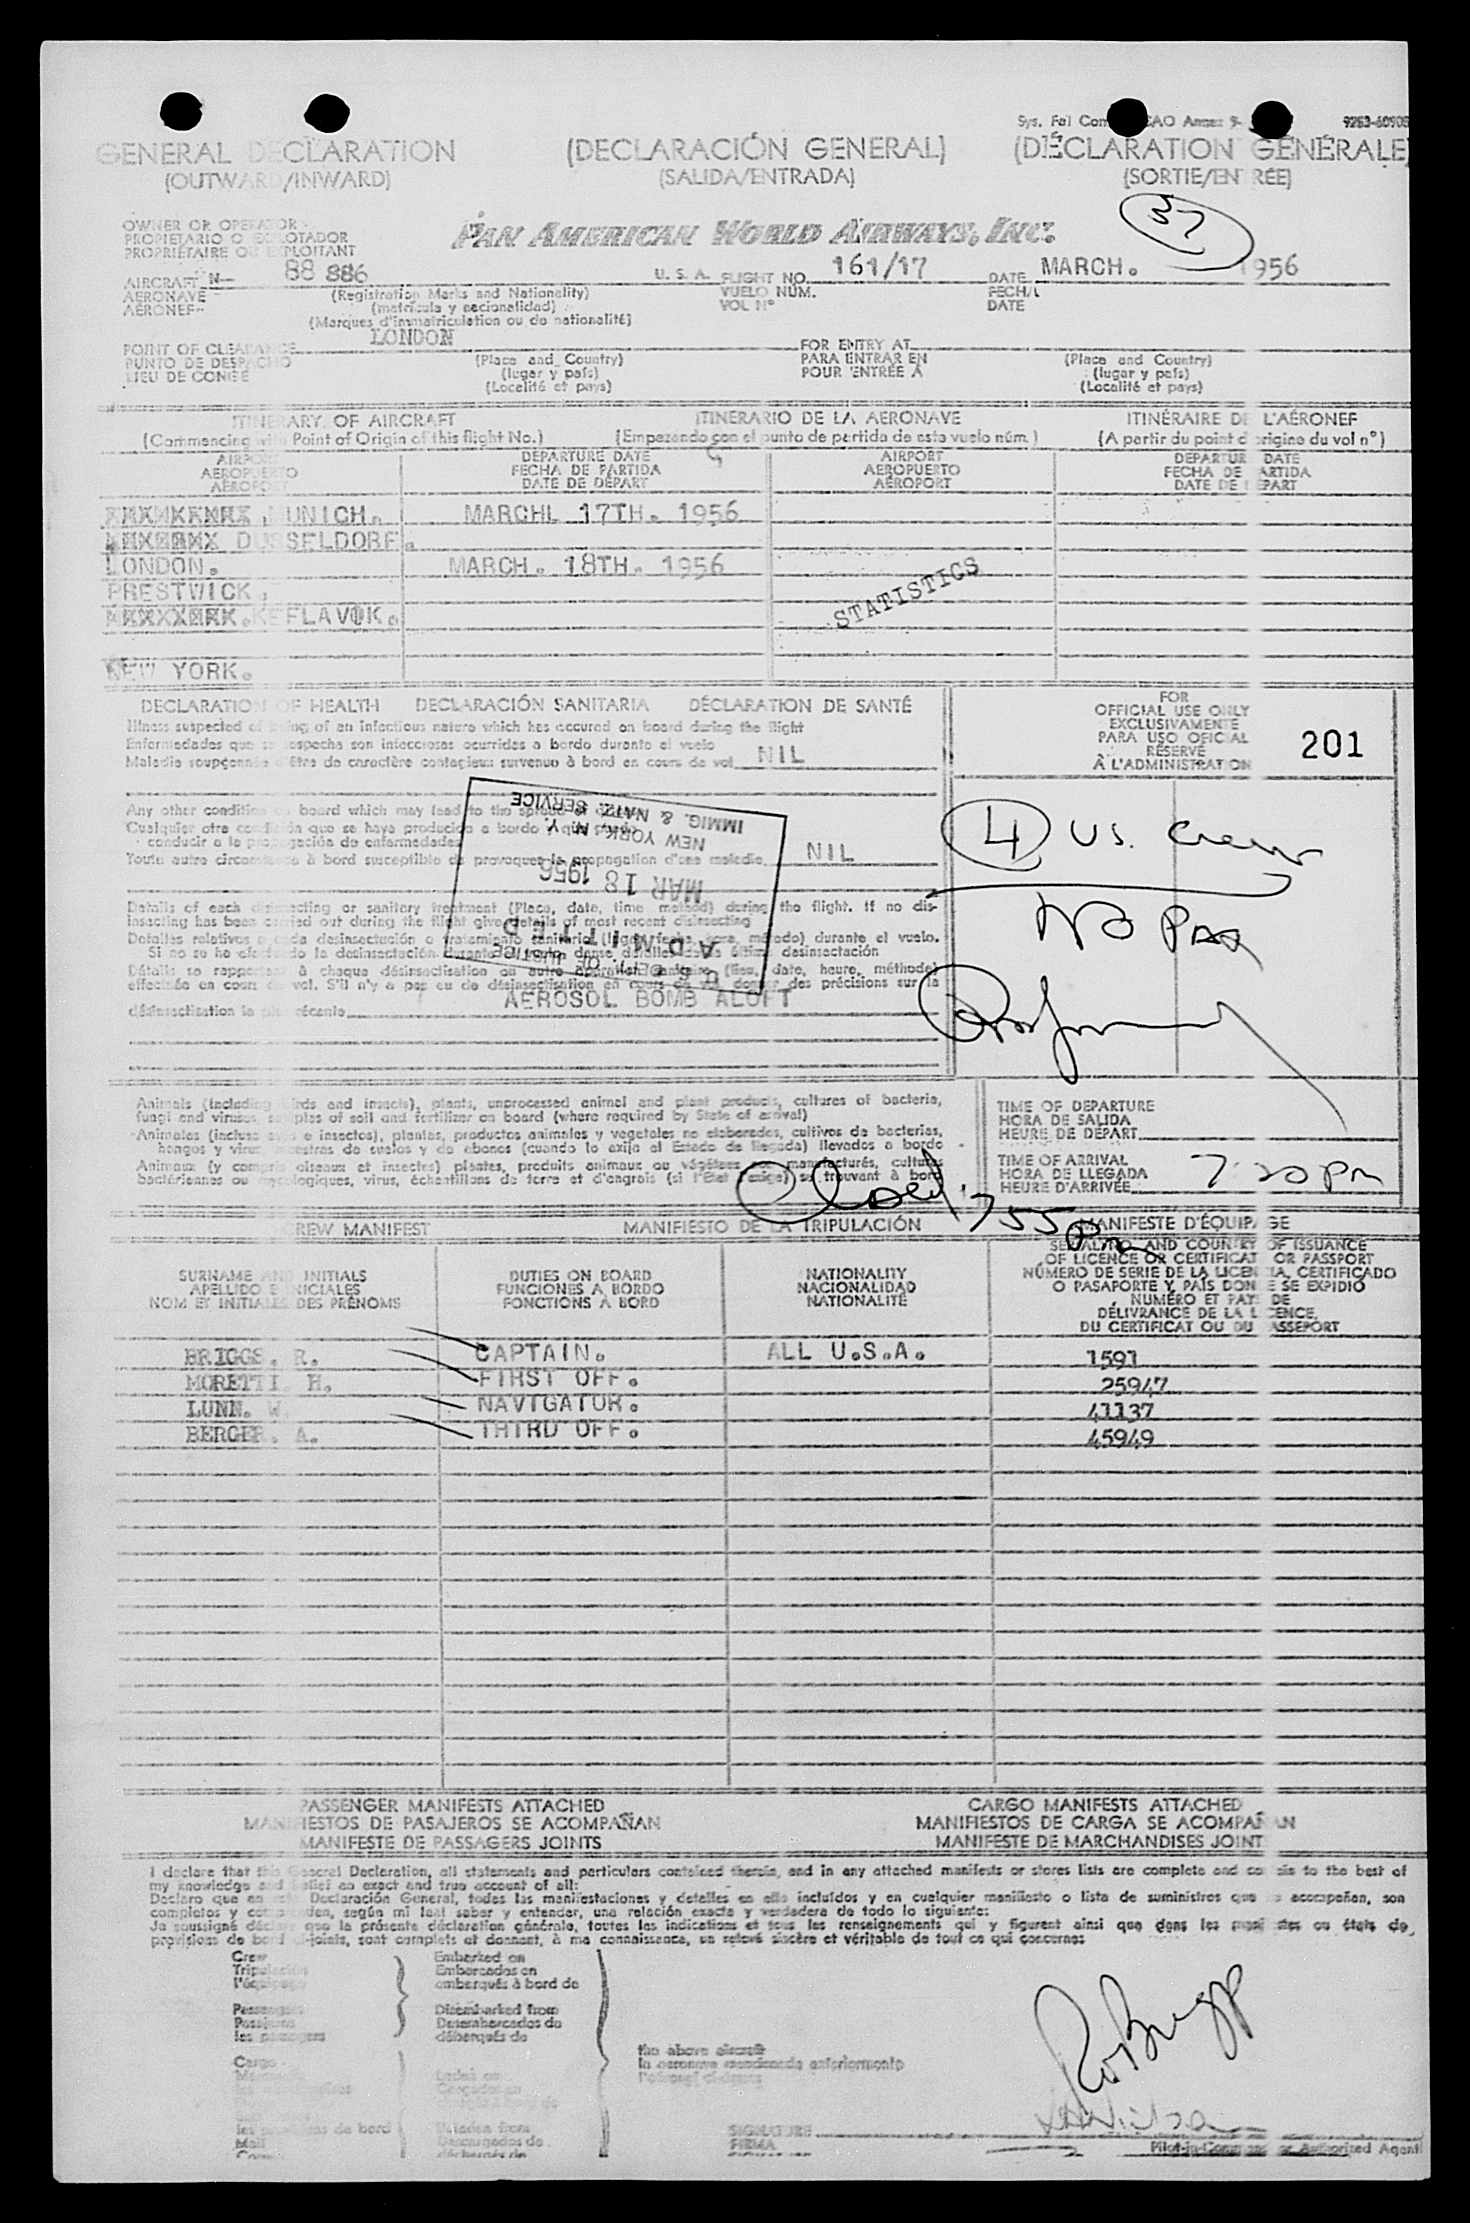 Sys. Fal Com ICAO Annex 9- 9263-60505
GENERAL DECLARATION (DECLARACIÓN GENERAL) (DÉCLARATION GÉNÉRALE)
(OUTWARD/INWARD) (SALIDA/ENTRADA) (SORTIE/ENTRÉE)
37
OWNER OR OPERATOR
PROPIETARIO O EXPLOTADOR PAN AMERICAN WORLD AIRWAYS, INC.
PROPRIÉTAIRE OU EXPLOITANT
AIRCRAFT N— 88 886 U. S. A. FLIGHT NO. 161/17 DATE MARCH. 1956
AERONAVE (Registration Marks and Nationality) VUELO NÚM. FECHA
AÉRONEF (matrícula y nacionalidad) VOL N° DATE
(Marques d'immatriculation ou de nationalité)
POINT OF CLEARANCE LONDON FOR ENTRY AT
PUNTO DE DESPACHO (Place and Country) PARA ENTRAR EN (Place and Country)
LIEU DE CONGÉ (lugar y país) POUR ENTRÉE À (lugar y país)
(Localité et pays) (Localité et pays)
ITINERARY OF AIRCRAFT ITINERARIO DE LA AERONAVE ITINÉRAIRE DE L'AÉRONEF
(Commencing with Point of Origin of this flight No.) (Empezando con el punto de partida de este vuelo núm.) (A partir du point d'origine du vol n°)
AIRPORT DEPARTURE DATE AIRPORT DEPARTURE DATE
AEROPUERTO FECHA DE PARTIDA AEROPUERTO FECHA DE PARTIDA
AÉROPORT DATE DE DÉPART AÉROPORT DATE DE DÉPART
MUNICH. MARCHL 17TH. 1956
DUSSELDORF.
LONDON. MARCH. 18TH. 1956
PRESTWICK.
KEFLAVIK.
STATISTICS
NEW YORK.
DECLARATION OF HEALTH DECLARACIÓN SANITARIA DÉCLARATION DE SANTÉ
Illness suspected of being of an infectious nature which has occured on board during the flight
Enfermedades que se sospecha son infecciosas ocurridas a bordo durante el vuelo
Maladie soupçonnée d'être de caractère contagieux survenue à bord en cours de vol NIL
FOR
OFFICIAL USE ONLY
EXCLUSIVAMENTE
PARA USO OFICIAL
RÉSERVÉ
À L'ADMINISTRATION
201
Any other condition on board which may lead to the spread of disease
Cualquier otra condición que se haya producido a bordo y que pueda
conducir a la propagación de enfermedades
Toute autre circonstance à bord susceptible de provoquer la propagation d'une maladie NIL
IMMIG. & NATZ. SERVICE
NEW YORK, N. Y.
MAR 18 1956
ADMITTED
U. S. DEPT. OF JUSTICE
4 US. Crew
NO PAX
Details of each disinsecting or sanitary treatment (Place, date, time method) during the flight. If no dis-
insecting has been carried out during the flight give details of most recent disinsecting
Detalles relativos a cada desinsectación o tratamiento sanitario (lugar, fecha, hora, método) durante el vuelo.
Si no se ha efectuado la desinsectación durante el vuelo dense detalles de la última desinsectación
Détails se rapportant à chaque désinsectisation ou autre opération sanitaire (lieu, date, heure, méthode)
effectuée en cours de vol. S'il n'y a pas eu de désinsectisation en cours de vol donner des précisions sur la
désinsectisation la plus récente AEROSOL BOMB ALOFT
Animals (including birds and insects), plants, unprocessed animal and plant products, cultures of bacteria,
fungi and viruses, samples of soil and fertilizer on board (where required by State of arrival)
Animales (incluso aves e insectos), plantas, productos animales y vegetales no elaborados, cultivos de bacterias,
hongos y virus, muestras de suelos y de abonos (cuando lo exija el Estado de llegada) llevados a bordo
Animaux (y compris oiseaux et insectes) plantes, produits animaux ou végétaux non manufacturés, cultures
bactériennes ou mycologiques, virus, échantillons de terre et d'engrais (si l'État l'exige) se trouvant à bord
TIME OF DEPARTURE
HORA DE SALIDA
HEURE DE DÉPART
TIME OF ARRIVAL
HORA DE LLEGADA 7:20 PM
HEURE D'ARRIVÉE
755 pm
CREW MANIFEST MANIFIESTO DE LA TRIPULACIÓN MANIFESTE D'ÉQUIPAGE
SURNAME AND INITIALS DUTIES ON BOARD NATIONALITY SERIAL NO. AND COUNTRY OF ISSUANCE
APELLIDO E INICIALES FUNCIONES A BORDO NACIONALIDAD OF LICENCE OR CERTIFICATE OR PASSPORT
NOM ET INITIALES DES PRÉNOMS FONCTIONS À BORD NATIONALITÉ NÚMERO DE SERIE DE LA LICENCIA, CERTIFICADO
O PASAPORTE Y PAÍS DONDE SE EXPIDIÓ
NUMÉRO ET PAYS DE
DÉLIVRANCE DE LA LICENCE,
DU CERTIFICAT OU DU PASSEPORT
BRIGGS. R. CAPTAIN. ALL U.S.A. 1591
MORETTI H. FIRST OFF. 25947
LUNN. W. NAVIGATOR. 41137
BERGER. A. THIRD OFF. 45949
PASSENGER MANIFESTS ATTACHED CARGO MANIFESTS ATTACHED
MANIFIESTOS DE PASAJEROS SE ACOMPAÑAN MANIFIESTOS DE CARGA SE ACOMPAÑAN
MANIFESTE DE PASSAGERS JOINTS MANIFESTE DE MARCHANDISES JOINT
I declare that this General Declaration, all statements and particulars contained therein, and in any attached manifests or stores lists are complete and contain to the best of
my knowledge and belief an exact and true account of all:
Declaro que en esta Declaración General, todas las manifestaciones y detalles en ella incluidos y en cualquier manifiesto o lista de suministros que se acompañan, son
completos y contienden, según mi leal saber y entender, una relación exacta y verdadera de todo lo siguiente:
Je soussigné déclare que la présente déclaration générale, toutes les indications et tous les renseignements qui y figurent ainsi que dans les manifestes ou états de
provisions de bord ci-joints, sont complets et donnent, à ma connaissance, un relevé sincère et véritable de tout ce qui concerne:
Crew Embarked on
Tripulación Embarcados en
l'équipage embarqués à bord de
Passengers Disembarked from
Pasajeros Desembarcados de
les passagers débarqués de
the above aircraft
la aeronave mencionada anteriormente
Cargo
les provisions de bord Unladen from
Mail Descargados de
SIGNATURE
FIRMA
Pilot-in-Command or Authorized Agent